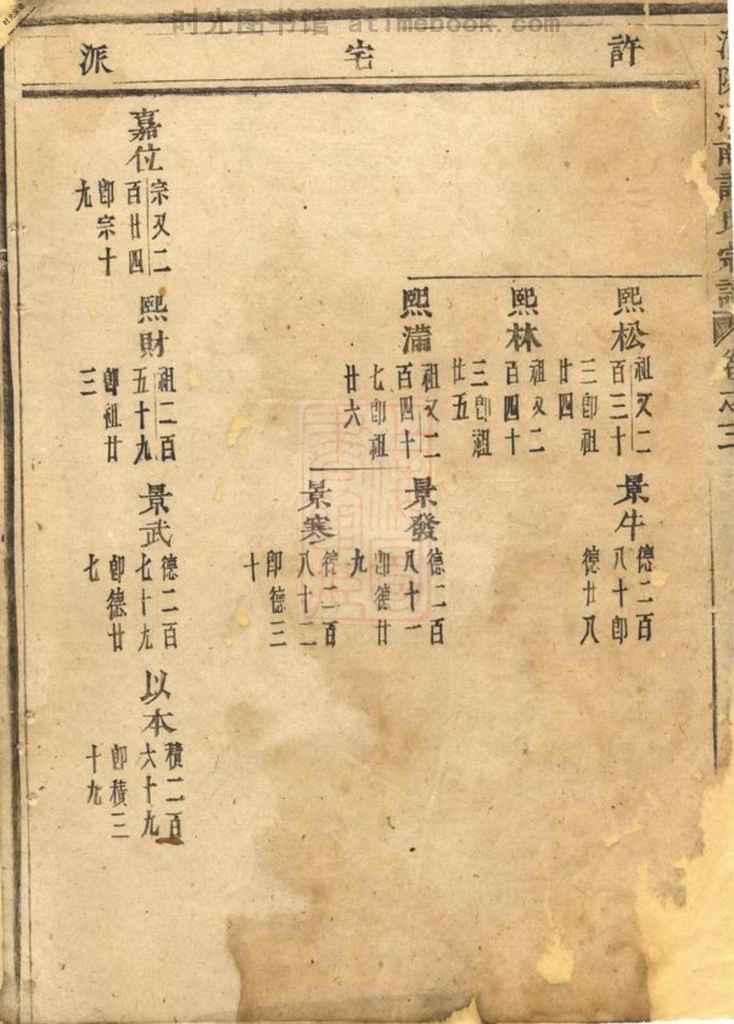 时光图书馆 atimebook.com
許宅派
熙松
祖又二
百三十
三即祖
廿四
景牛
德二百
八十即
德廿八
熙林
祖又二
百四十
三即祖
廿五
熙滿
祖又二
百四十
七即祖
廿六
景發
德二百
八十一
即德廿
九
景寒
德二百
八十二
即德三
十
嘉位
宗又二
百廿四
即宗十
九
熙財
祖二百
五十九
即祖廿
三
景武
德二百
七十九
即德廿
七
以本
積二百
六十九
即積三
十九